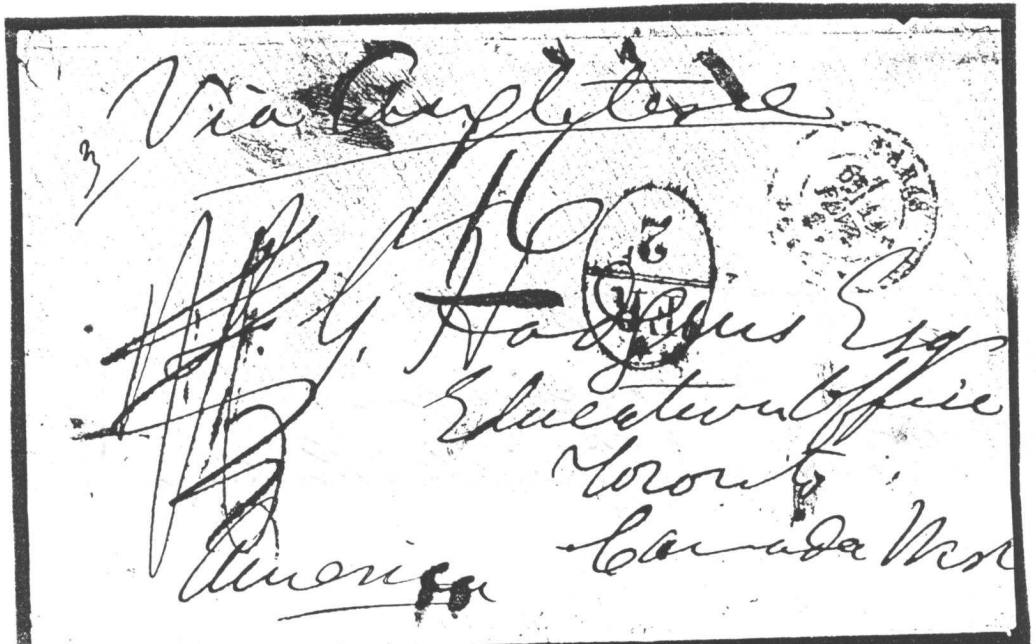 Via Angleterre
16
2
PARIS
J. G. Hodgins Esq
Education Office
Toronto
Canada West
America